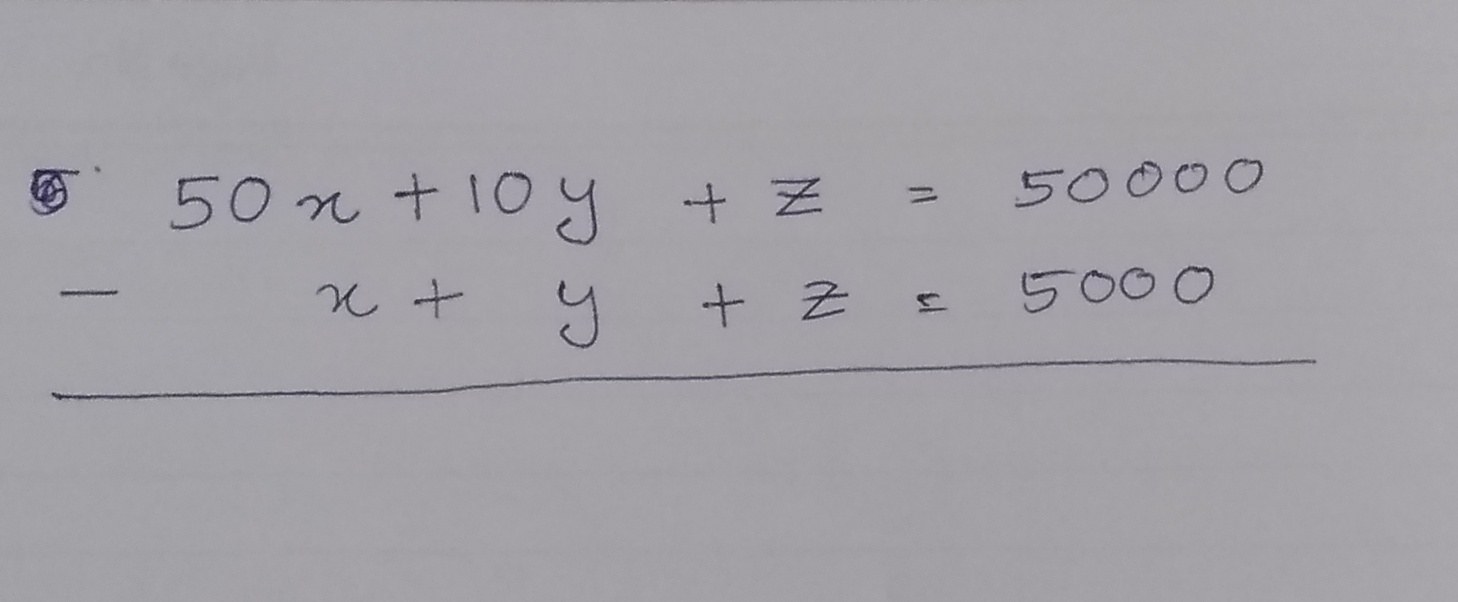 50x + 10y + z = 50000
- x + y + z = 5000